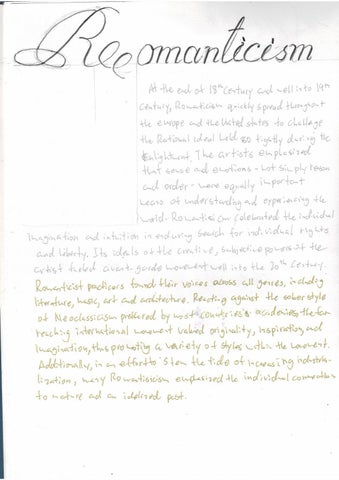 Romanticism
At the end of 18th Century and well into 19th
Century, Romaticism quickly spread throughout
the europe and the United states to challenge
the Rational ideal held so tightly during the
Enlightment. The artists emphasized
that sense and emotions - not simply reason
and order - were equally important
means of understanding and experiencing the
world. Romantism celebrated the individual
imagination and intuition in enduring search for individual rights
and liberty. Its ideals of the creative, subjective powers of the
artist fueled avant-garde movement well into the 20th Century.
Romanticist practicers found their voices across all genres, including
literature, music, art and architecture. Reacting against the sober style
of Neoclassicism preferred by most countries's academies, the far
reaching international movement valued originality, inspiration, and
imagination, thus promoting a variety of styles within the movement.
Additionally, in an effort to stem the tide of increasing industria-
lization, many Romanticism emphasized the individual connection
to nature and an idealized past.